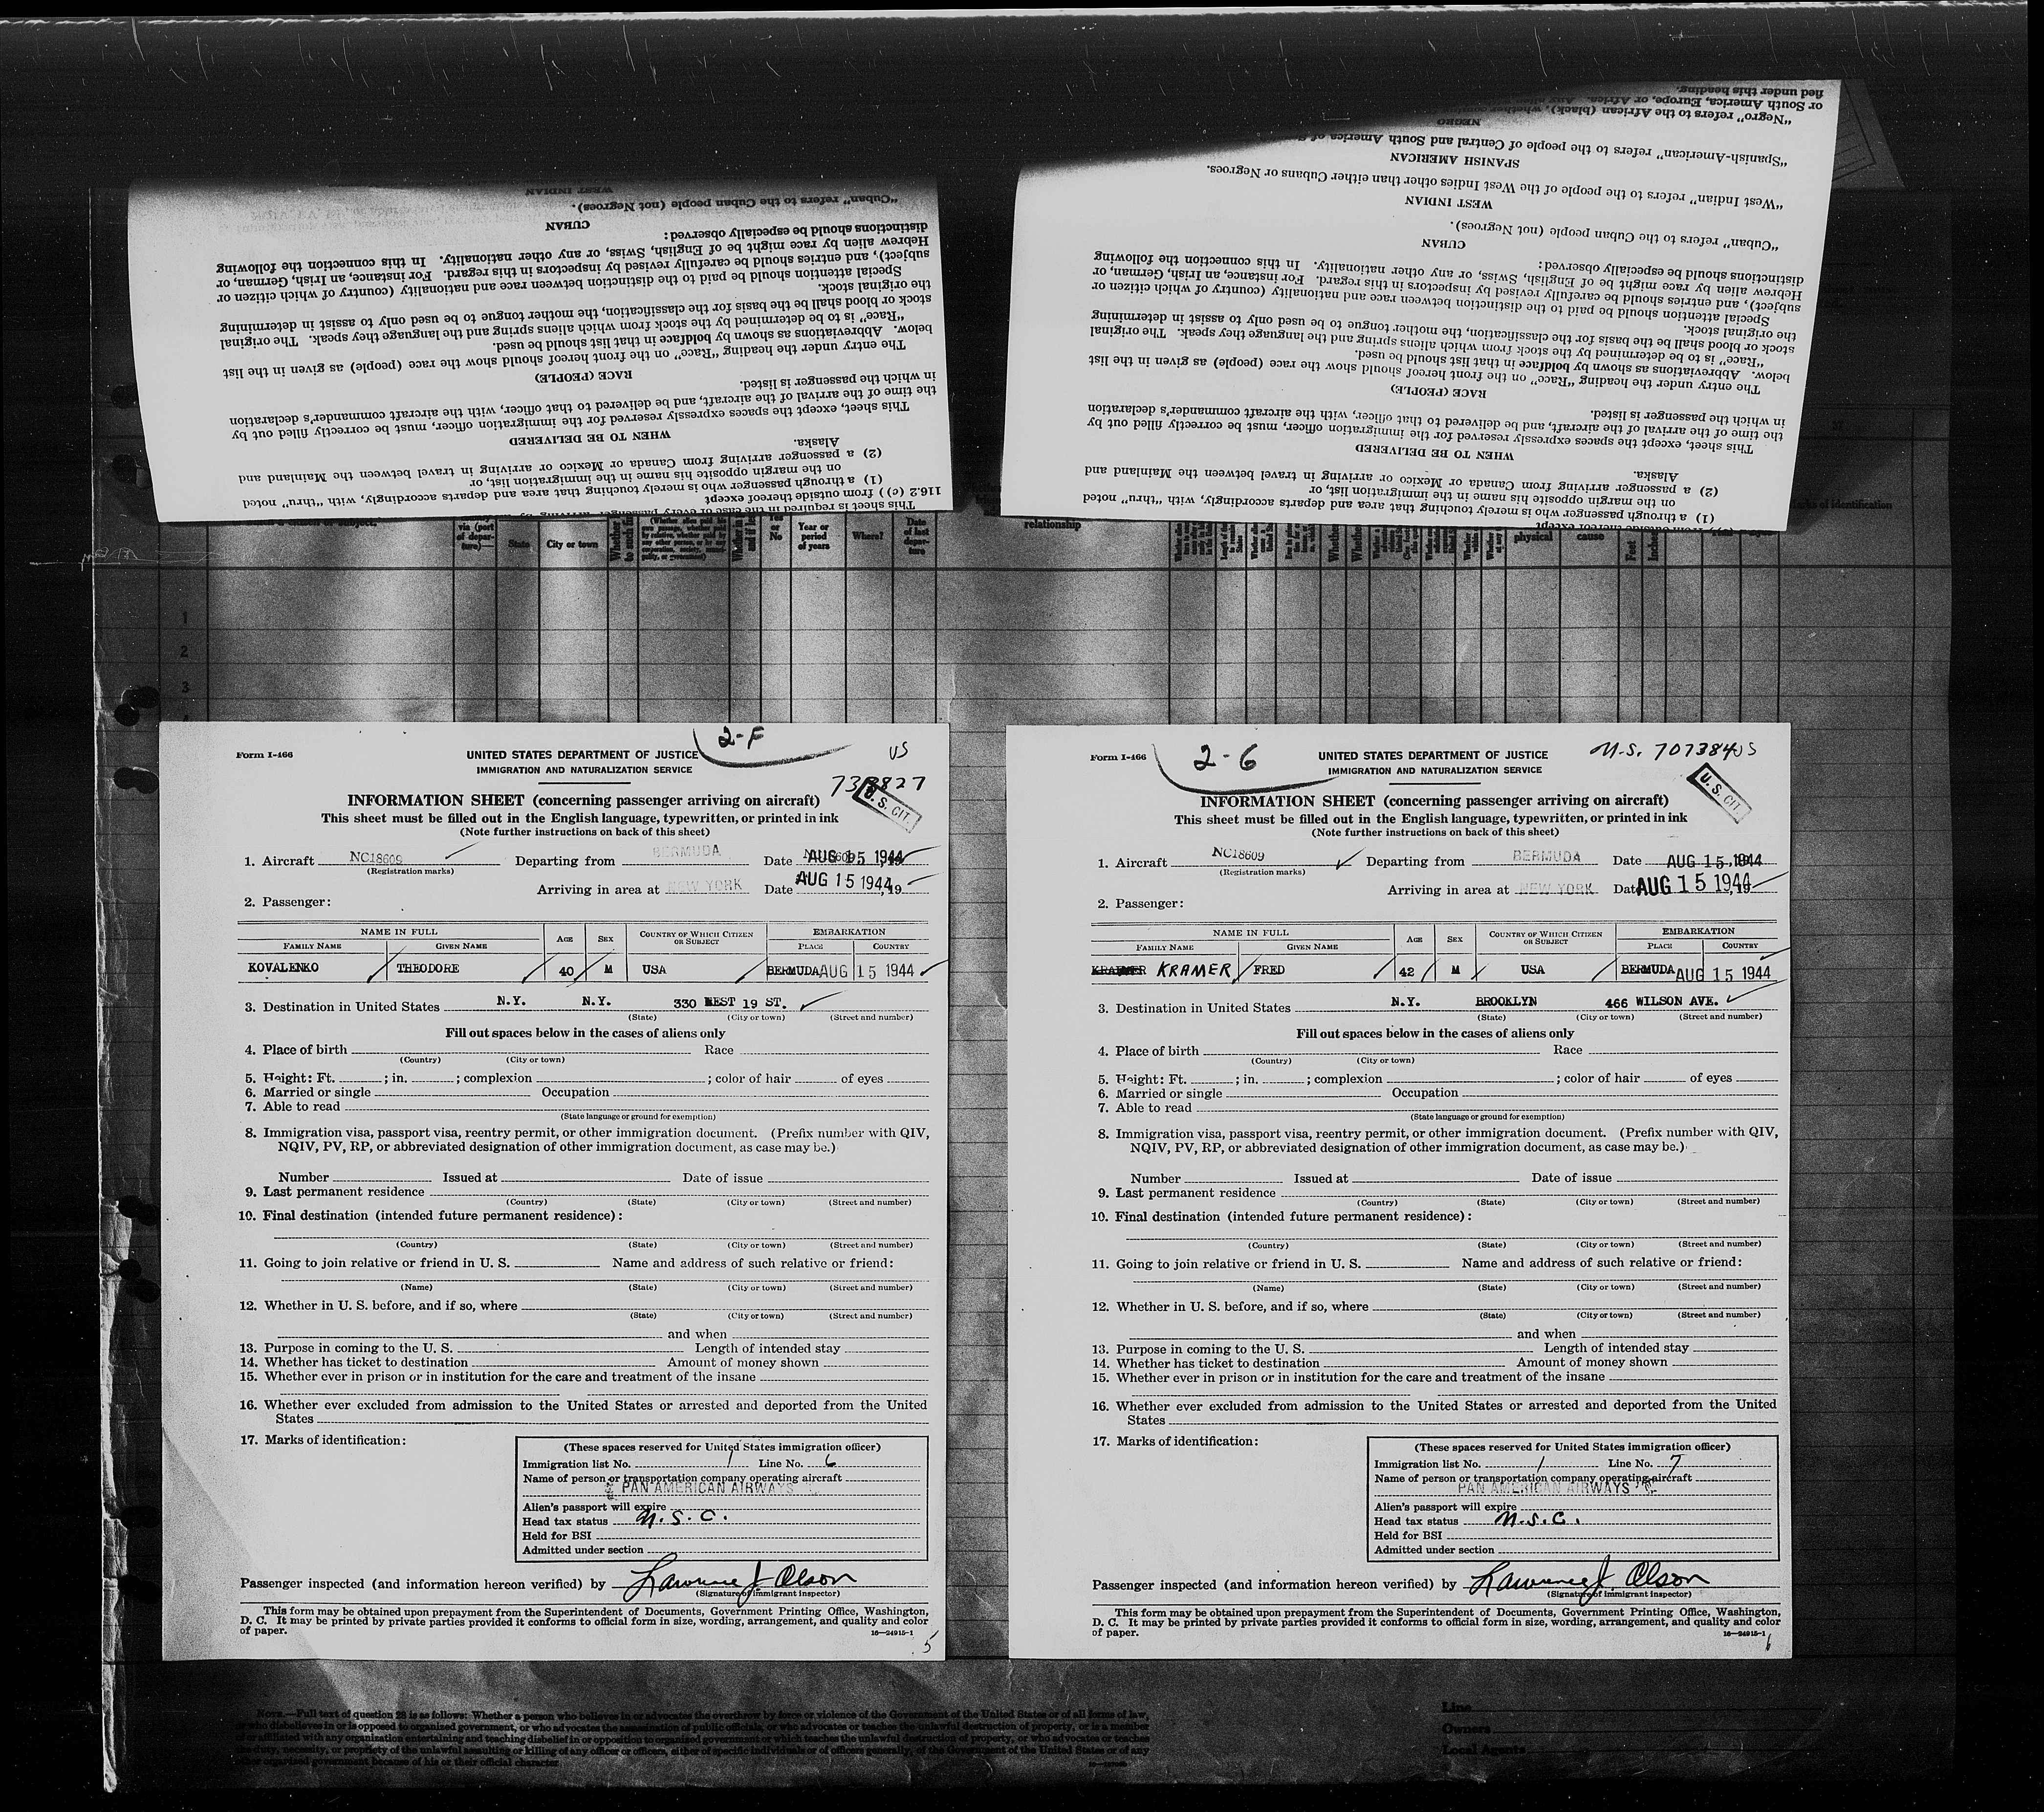 "Cuban" refers to the Cuban people (not Negroes).
CUBAN
distinctions should be especially observed:
Hebrew alien by race might be of English, Swiss, or any other nationality. In this connection the following
subject), and entries should be carefully revised by inspectors in this regard. For instance, an Irish, German, or
Special attention should be paid to the distinction between race and nationality (country of which citizen or
the original stock.
stock or blood shall be the basis for the classification, the mother tongue to be used only to assist in determining
"Race" is to be determined by the stock from which aliens spring and the language they speak. The original
below. Abbreviations as shown by boldface in that list should be used.
The entry under the heading "Race" on the front hereof should show the race (people) as given in the list
RACE (PEOPLE)
in which the passenger is listed.
the time of the arrival of the aircraft, and be delivered to that officer, with the aircraft commander's declaration
This sheet, except the spaces expressly reserved for the immigration officer, must be correctly filled out by
WHEN TO BE DELIVERED
Alaska.
(2) a passenger arriving from Canada or Mexico or arriving in travel between the Mainland and
on the margin opposite his name in the immigration list, or
(1) a through passenger who is merely touching that area and departs accordingly, with "thru" noted
116.2 (c)) from outside thereof except
fied under this heading.
or South America, Europe, or Africa.
"Negro" refers to the African (black), whether
NEGRO
"Spanish-American" refers to the people of Central and South America of
SPANISH AMERICAN
"West Indian" refers to the people of the West Indies other than either Cubans or Negroes.
WEST INDIAN
"Cuban" refers to the Cuban people (not Negroes).
CUBAN
distinctions should be especially observed:
Hebrew alien by race might be of English, Swiss, or any other nationality. In this connection the following
subject), and entries should be carefully revised by inspectors in this regard. For instance, an Irish, German, or
Special attention should be paid to the distinction between race and nationality (country of which citizen or
the original stock.
stock or blood shall be the basis for the classification, the mother tongue to be used only to assist in determining
"Race" is to be determined by the stock from which aliens spring and the language they speak. The original
below. Abbreviations as shown by boldface in that list should be used.
The entry under the heading "Race" on the front hereof should show the race (people) as given in the list
RACE (PEOPLE)
in which the passenger is listed.
the time of the arrival of the aircraft, and be delivered to that officer, with the aircraft commander's declaration
This sheet, except the spaces expressly reserved for the immigration officer, must be correctly filled out by
WHEN TO BE DELIVERED
Alaska.
(2) a passenger arriving from Canada or Mexico or arriving in travel between the Mainland and
on the margin opposite his name in the immigration list, or
(1) a through passenger who is merely touching that area and departs accordingly, with "thru" noted
via (port of departure)— State City or town Yes or No Year or period of years Where? Date of last departure
relationship physical cause Feet Inches marks of identification
1
2
3
Form I-466
2-F
US
UNITED STATES DEPARTMENT OF JUSTICE
IMMIGRATION AND NATURALIZATION SERVICE
U.S. CIT.
INFORMATION SHEET (concerning passenger arriving on aircraft)
This sheet must be filled out in the English language, typewritten, or printed in ink
(Note further instructions on back of this sheet)
1. Aircraft NC18609 Departing from BERMUDA Date AUG 15 1944
(Registration marks)
Arriving in area at NEW YORK Date AUG 15 1944, 19
2. Passenger:
NAME IN FULL AGE SEX COUNTRY OF WHICH CITIZEN OR SUBJECT EMBARKATION
FAMILY NAME GIVEN NAME PLACE COUNTRY
KOVALENKO THEODORE 40 M USA BERMUDA AUG 15 1944
3. Destination in United States N.Y. N.Y. 330 WEST 19 ST.
(State) (City or town) (Street and number)
Fill out spaces below in the cases of aliens only
4. Place of birth Race
(Country) (City or town)
5. Height: Ft. ; in. ; complexion ; color of hair of eyes
6. Married or single Occupation
7. Able to read
(State language or ground for exemption)
8. Immigration visa, passport visa, reentry permit, or other immigration document. (Prefix number with QIV,
NQIV, PV, RP, or abbreviated designation of other immigration document, as case may be.)
Number Issued at Date of issue
9. Last permanent residence
(Country) (State) (City or town) (Street and number)
10. Final destination (intended future permanent residence):
(Country) (State) (City or town) (Street and number)
11. Going to join relative or friend in U. S. Name and address of such relative or friend:
(Name) (State) (City or town) (Street and number)
12. Whether in U. S. before, and if so, where
(State) (City or town) (Street and number)
and when
13. Purpose in coming to the U. S. Length of intended stay
14. Whether has ticket to destination Amount of money shown
15. Whether ever in prison or in institution for the care and treatment of the insane
16. Whether ever excluded from admission to the United States or arrested and deported from the United
States
17. Marks of identification:
(These spaces reserved for United States immigration officer)
Immigration list No. 1 Line No. 6
Name of person or transportation company operating aircraft
PAN AMERICAN AIRWAYS
Alien's passport will expire
Head tax status N.S.C.
Held for BSI
Admitted under section
Passenger inspected (and information hereon verified) by Lawrence J. Olson
(Signature of immigrant inspector)
This form may be obtained upon prepayment from the Superintendent of Documents, Government Printing Office, Washington,
D. C. It may be printed by private parties provided it conforms to official form in size, wording, arrangement, and quality and color
of paper.
16—24915-1
5
Form I-466
2-6
N.S. 707384 US
UNITED STATES DEPARTMENT OF JUSTICE
IMMIGRATION AND NATURALIZATION SERVICE
U.S. CIT.
INFORMATION SHEET (concerning passenger arriving on aircraft)
This sheet must be filled out in the English language, typewritten, or printed in ink
(Note further instructions on back of this sheet)
1. Aircraft NC18609 Departing from BERMUDA Date AUG 15 1944
(Registration marks)
Arriving in area at NEW YORK Date AUG 15 1944, 19
2. Passenger:
NAME IN FULL AGE SEX COUNTRY OF WHICH CITIZEN OR SUBJECT EMBARKATION
FAMILY NAME GIVEN NAME PLACE COUNTRY
KRAMER FRED 42 M USA BERMUDA AUG 15 1944
3. Destination in United States N.Y. BROOKLYN 466 WILSON AVE.
(State) (City or town) (Street and number)
Fill out spaces below in the cases of aliens only
4. Place of birth Race
(Country) (City or town)
5. Height: Ft. ; in. ; complexion ; color of hair of eyes
6. Married or single Occupation
7. Able to read
(State language or ground for exemption)
8. Immigration visa, passport visa, reentry permit, or other immigration document. (Prefix number with QIV,
NQIV, PV, RP, or abbreviated designation of other immigration document, as case may be.)
Number Issued at Date of issue
9. Last permanent residence
(Country) (State) (City or town) (Street and number)
10. Final destination (intended future permanent residence):
(Country) (State) (City or town) (Street and number)
11. Going to join relative or friend in U. S. Name and address of such relative or friend:
(Name) (State) (City or town) (Street and number)
12. Whether in U. S. before, and if so, where
(State) (City or town) (Street and number)
and when
13. Purpose in coming to the U. S. Length of intended stay
14. Whether has ticket to destination Amount of money shown
15. Whether ever in prison or in institution for the care and treatment of the insane
16. Whether ever excluded from admission to the United States or arrested and deported from the United
States
17. Marks of identification:
(These spaces reserved for United States immigration officer)
Immigration list No. 1 Line No. 7
Name of person or transportation company operating aircraft
PAN AMERICAN AIRWAYS
Alien's passport will expire
Head tax status N.S.C.
Held for BSI
Admitted under section
Passenger inspected (and information hereon verified) by Lawrence J. Olson
(Signature of immigrant inspector)
This form may be obtained upon prepayment from the Superintendent of Documents, Government Printing Office, Washington,
D. C. It may be printed by private parties provided it conforms to official form in size, wording, arrangement, and quality and color
of paper.
16—24915-1
6
NOTE.—Full text of question 28 is as follows: Whether a person who believes in or advocates the overthrow by force or violence of the Government of the United States or of all forms of law,
or who disbelieves in or is opposed to organized government, or who advocates the assassination of public officials, or who advocates or teaches the unlawful destruction of property, or is a member
of or affiliated with any organization entertaining and teaching disbelief in or opposition to organized government or which teaches the unlawful destruction of property, or who advocates or teaches
the duty, necessity, or propriety of the unlawful assaulting or killing of any officer or officers, either of specific individuals or of officers generally, of the Government of the United States or of any
other organized government because of his or their official character.
Line
Owners
Local Agents